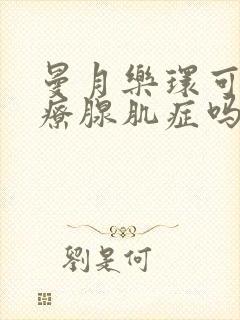 曼月樂环可
療腺肌症吗
劉是何